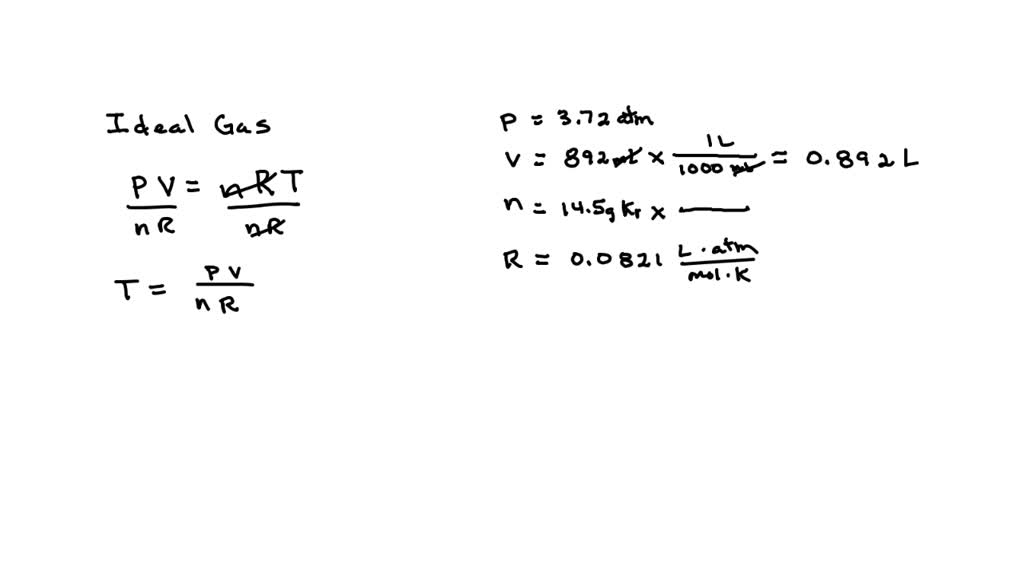 Ideal Gas
PV = nRT
nR nR
T = PV
nR
P = 3.72 atm
V = 892 mL x 1L = 0.892 L
1000 mL
n = 14.5g Kr x
R = 0.0821 L·atm
mol·K